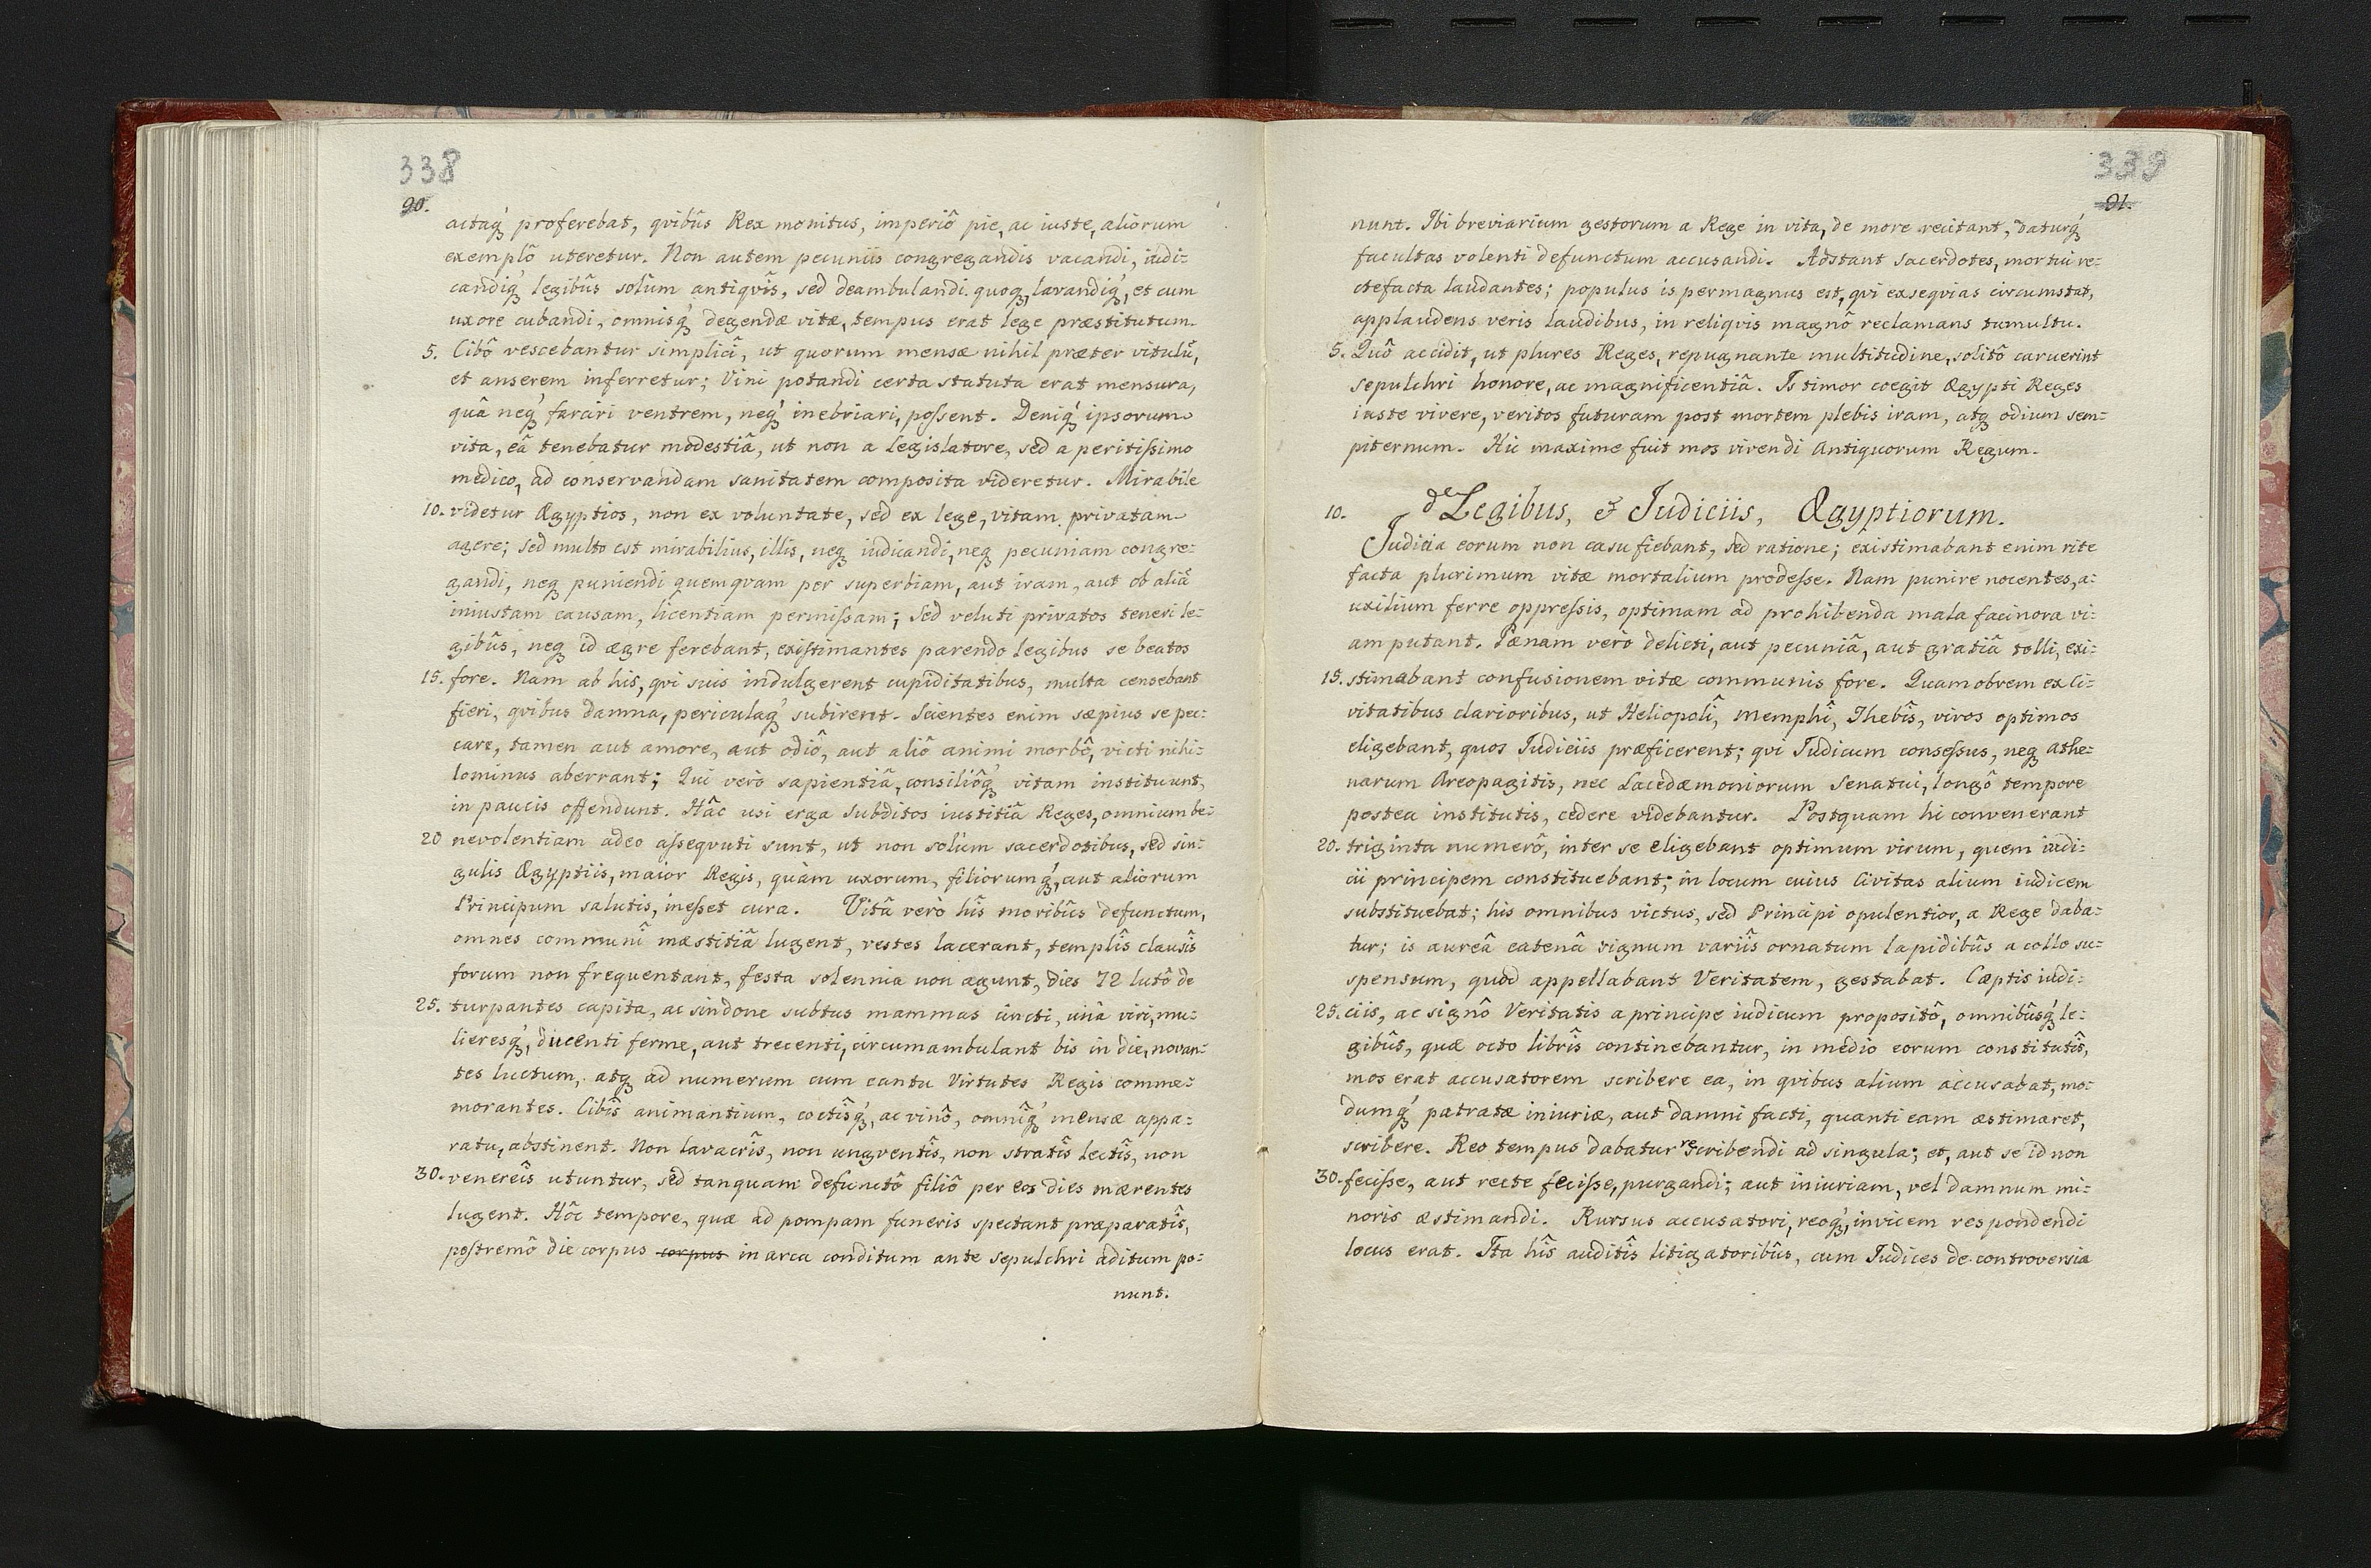 338
90.
actaq́ proferebat, qvibûs Rex monitus, imperiô pie, ac iuste, aliorum
exemplô uteretur. Non autem pecuniis congregandis vacandi, iudi-
candiq́ legibûs solùm antiqvîs, sed deambulandi quoq, lavandiq́, et cum
uxore cubandi, omnisq́ degendæ vitæ, tempus erat lege præstitutum.
5. Cibô vescebantur simplicî, ut quorum mensæ nihil præter vitulū,
et anserem inferretur; Vini potandi certa statuta erat mensura,
quâ neq́ farciri ventrem, neq́ inebriari, poſsent. Deniq́ ipsorum
vita, eâ tenebatur modestiâ, ut non a Legislatore, sed a peritiſsimo
medico, ad conservandam sanitatem composita videretur. Mirabile
10. videtur Ægyptios, non ex voluntate, sed ex lege, vitam privatam
agere; sed multo est mirabilius, illis, neq iudicandi, neq pecuniam congre-
gandi, neq puniendi quemqvam per superbiam, aut iram, aut ob aliā
iniustam causam, licentiam permiſsam; sed veluti privatos teneri le-
gibûs, neq id ægre ferebant, exiſtimantes parendo legibus se beatos
15. fore. Nam ab his, qvi suis indulgerent cupiditatibus, multa censebant
fieri, qvibus damna, periculaq́ subirent. Scientes enim sæpius se pec-
care, tamen aut amore, aut odiô, aut aliô animi morbô, victi nihi-
lominus aberrant; Qui verò sapientiâ, consiliôq́ vitam instituunt,
in paucis offendunt. Hâc usi erga subditos iustitiâ Reges, omnium be-
20 nevolentiam adeo aſseqvuti sunt, ut non solùm sacerdotibus, sed sin-
gulis Ægyptiis, maior Regis, quàm uxorum, filiorumq́, aut aliorum
Principum salutis, ineſset cura. Vitâ verò hîs moribûs defunctum,
omnes communî mæstitiâ lugent, vestes lacerant, templîs clausîs
forum non frequentant, festa solennia non agunt, dies 72 lutô de
25. turpantes capita, ac sindone subtus mammas cincti, unâ viri, mu-
lieresq́, ducenti ferme, aut trecenti, circumambulant bis in die, novan-
tes luctum, atq ad numerum cum cantu Virtutes Regis comme-
morantes. Cibîs animantium, coctîsq́, ac vinô, omnîq́ mensæ appa-
ratu, abstinent. Non lavacrîs, non ungventîs, non stratîs lectîs, non
30. venereîs utuntur, sed tanquam defunctô filiô per eos dies mærentes
lugent. Hôc tempore, quæ ad pompam funeris spectant præparatîs,
poſtremô die corpus corpus in arca conditum ante sepulchri aditum po-
nunt.
339
91.
nunt. Ibi breviarium gestorum a Rege in vita, de more recitant, daturq́
facultas volenti defunctum accusandi. Adstant sacerdotes, mortui re-
ctefacta laudantes; populus is permagnus est, qvi exseqvias circumstat,
applaudens veris laudibus, in reliqvis magnô reclamans tumultu.
5. Quô accidit, ut plures Reges, repugnante multitudine, solitô caruerint
sepulchri honore, ac magnificentiâ. Is timor coegit Ægypti Reges
iuste vivere, veritos futuram post mortem plebis iram, atq odium sem-
piternum. Hic maxime fuit mos vivendi Antiquorum Regum.
10. de Legibus, & Judiciis, Ægyptiorum.
Judicia eorum non casu fiebant, sed ratione; existimabant enim rite
facta plurimum vitæ mortalium prodeſse. Nam punire nocentes, a-
uxilium ferre oppreſsis, optimam ad prohibenda mala facinora vi-
am putant. Pænam verò delicti, aut pecuniâ, aut gratiâ tolli, exi-
15. stimabant confusionem vitæ communis fore. Quamobrem ex Ci-
vitatibus clarioribus, ut Heliopolî, Memphî, Thebîs, viros optimos
eligebant, quos Judiciis præficerent; qvi Judicum conseſsus, neq Athe-
narum Areopagitis, nec Lacedæmoniorum Senatui, longô tempore
postea institutis, cedere videbantur. Postquam hi convenerant
20. triginta numerô, inter se eligebant optimum virum, quem iudi-
cii principem constituebant; in locum cuius Civitas alium iudicem
substituebat; his omnibus victus, sed Principi opulentior, a Rege daba-
tur; is aureâ catenâ signum variîs ornatum lapidibûs a collo su-
spensum, quod appellabant Veritatem, gestabat. Cæptis iudi-
25. ciis, ac signô Veritatis a principe iudicum propositô, omnibûsq́ le-
gibûs, quæ octo librîs continebantur, in medio eorum constitutîs,
mos erat accusatorem scribere ea, in qvibus alium accusabat, mo-
dumq́ patratæ iniuriæ, aut damni facti, quanti eam æstimaret,
scribere. Reo tempus dabatur rescribendi ad singula; et, aut se id non
30. feciſse, aut recte feciſse, purgandi; aut iniuriam, vel damnum mi-
noris æstimandi. Rursus accusatori, reoq́, invicem respondendi
locus erat. Ita hîs auditîs litigatoribûs, cum Judices de controversia